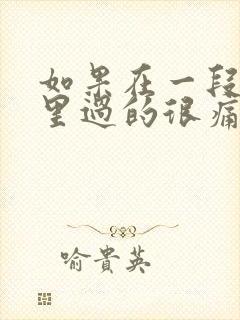 如果在一段
里過的很痛
喻貴英